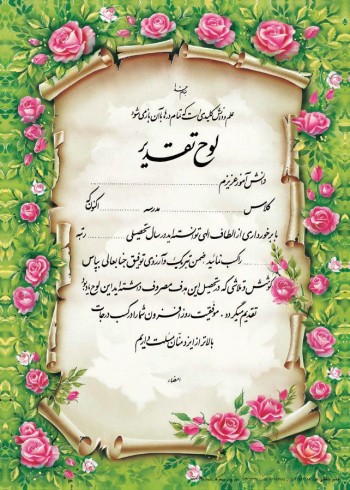 علم و دانش کلیدی است که تمام درها با آن باز می شود
لوح تقدیر
دانش آموز عزیزم ........................................
کلاس .................... مدرسه .................... اکنون که
با برخورداری از الطاف الهی توانسته اید در سال تحصیلی .......... رتبه
.......... را کسب نمائید ضمن تبریک و آرزوی توفیق جنابعالی بپاس
کوشش و تلاشی که در تحصیل این هدف مصروف داشته اید این لوح
تقدیم میگردد . موفقیت روزافزون شما را در کسب درجات
بالاتر از ایزد منان مسئلت داریم
امضاء